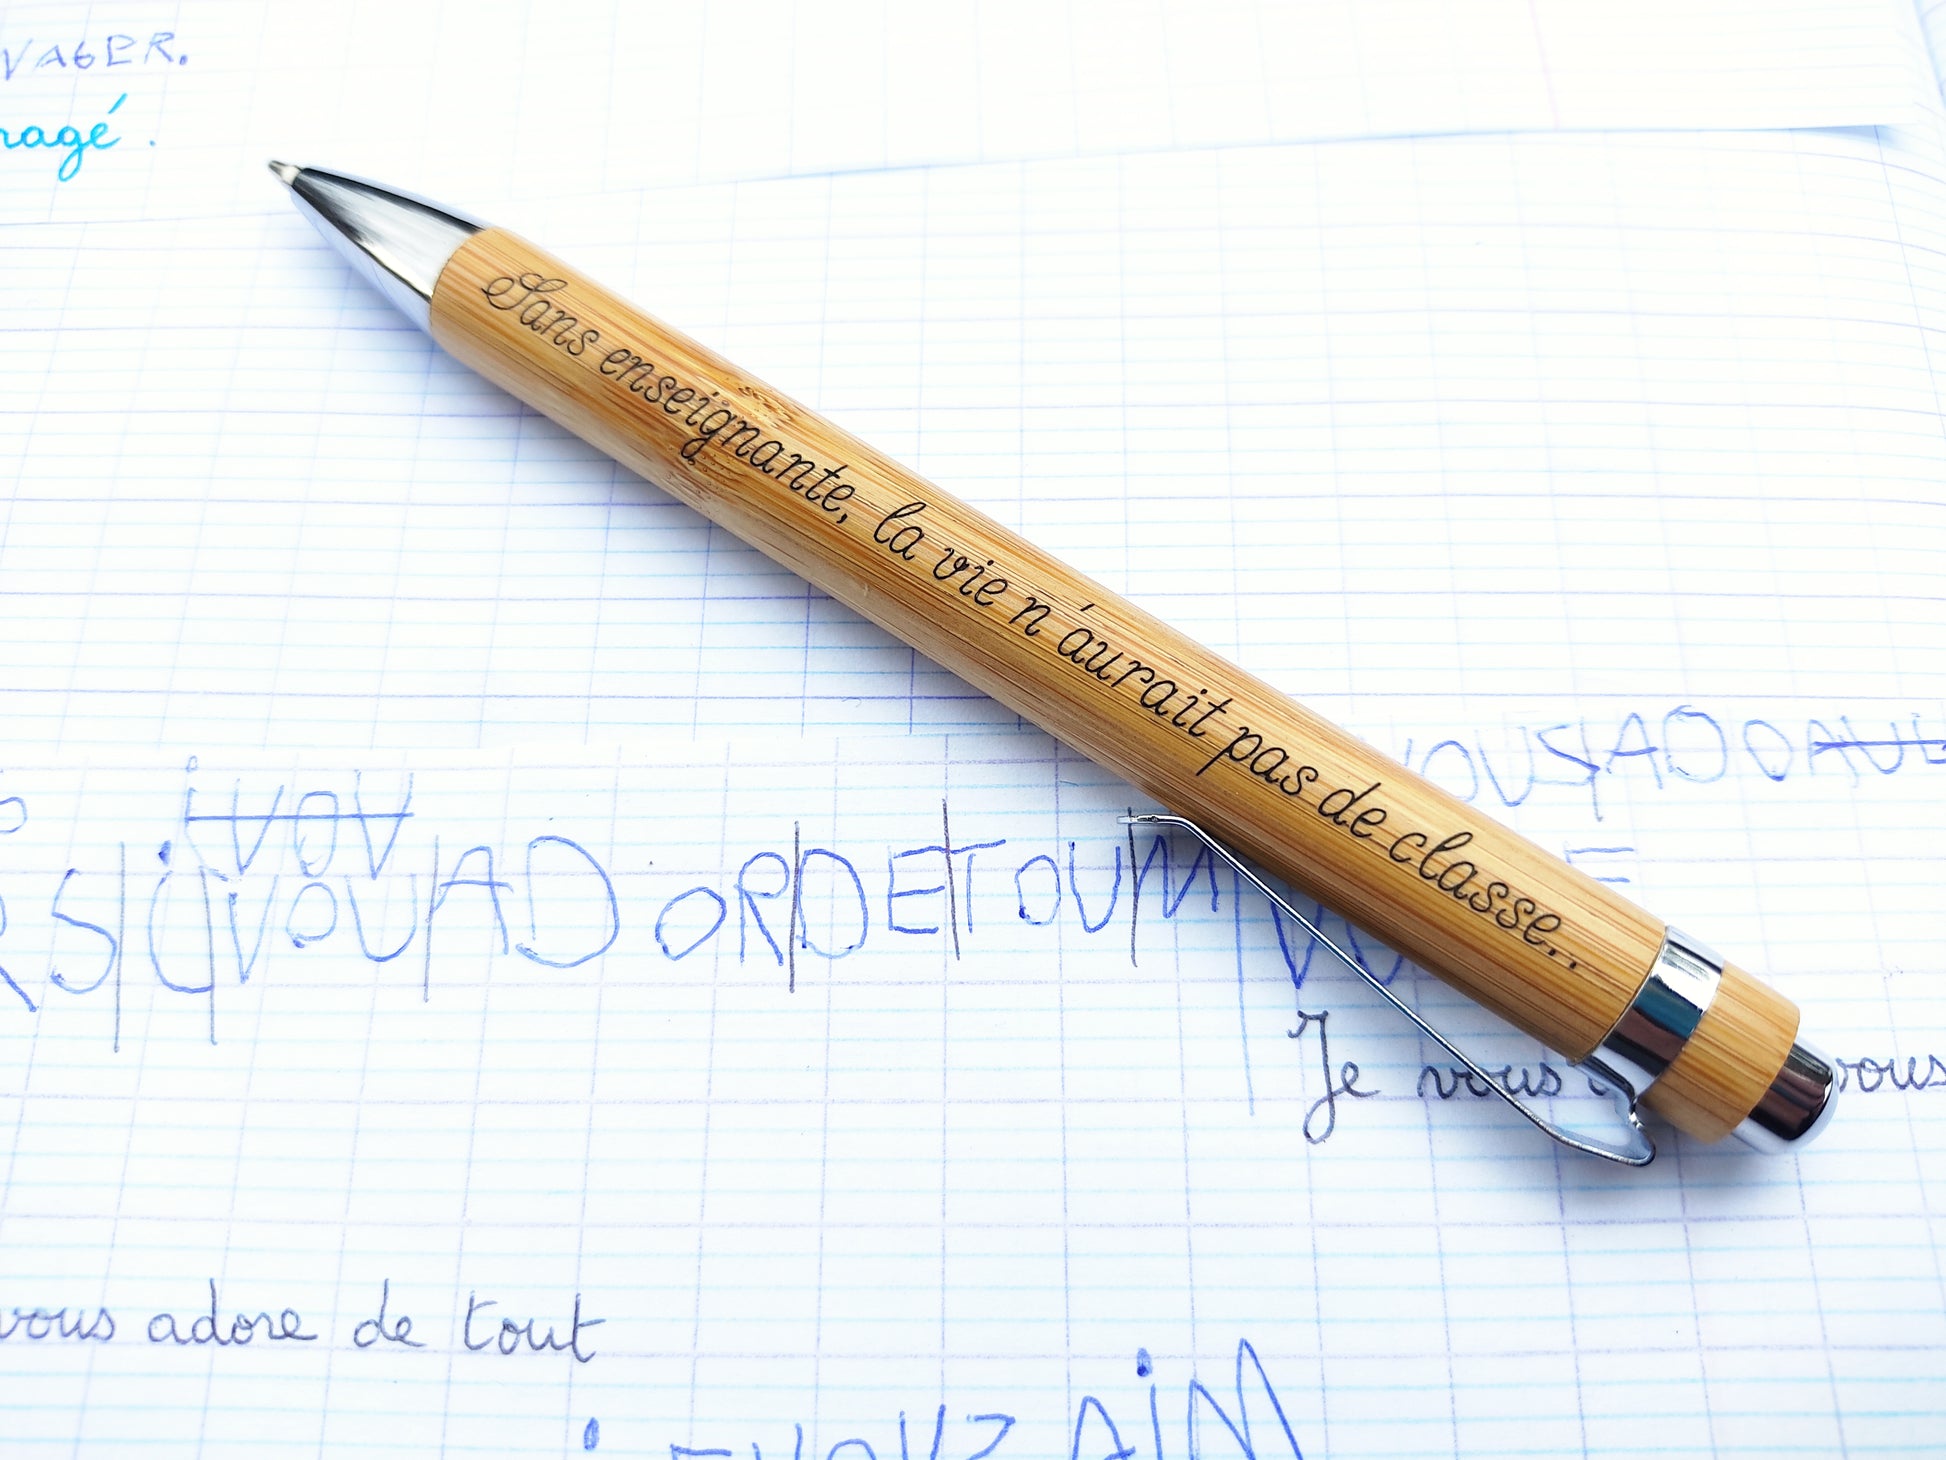 VAGER.
ragé.
Sans enseignante, la vie n'aurait pas de classe..
VOUS ADO
VOU
RS i VOU AD ORDE TOUM
Je vous
vous
vous adore de tout
AiM